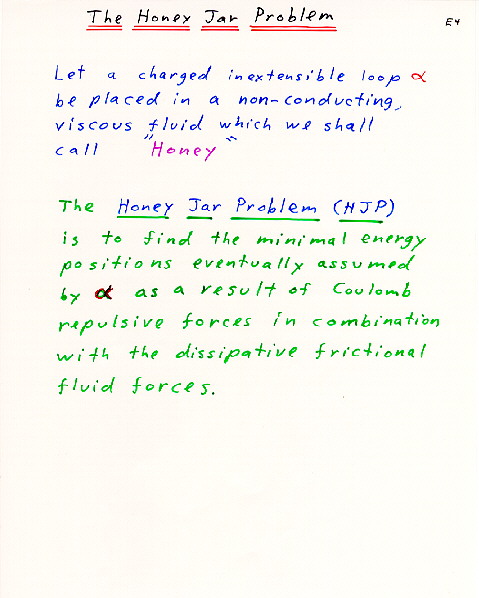 The Honey Jar Problem
E4
Let a charged inextensible loop α
be placed in a non-conducting,
viscous fluid which we shall
call "Honey"
The Honey Jar Problem (HJP)
is to find the minimal energy
positions eventually assumed
by α as a result of Coulomb
repulsive forces in combination
with the dissipative frictional
fluid forces.